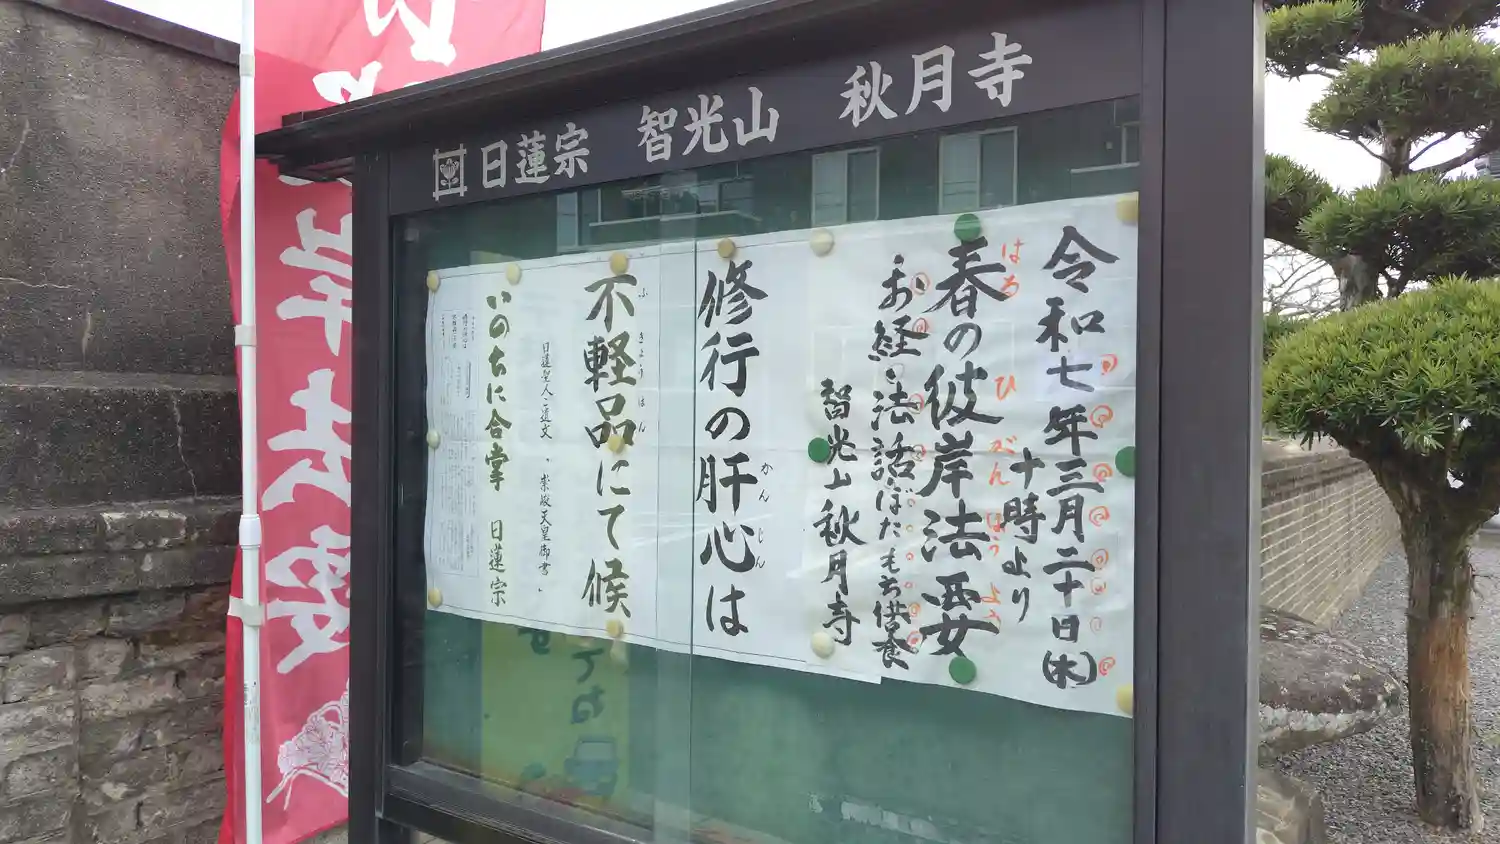 日蓮宗 智光山 秋月寺
令和七年三月二十日(木)
十時より
春の彼岸法要
はる ひ がん ほう よう
お経・法話・ぼたもち供食
智光山秋月寺
修行の肝心は
かん じん
不軽品にて候
ふ きよう ほん
日蓮聖人ご遺文 、崇峻天皇御書、
いのちに合掌 日蓮宗
岸法要